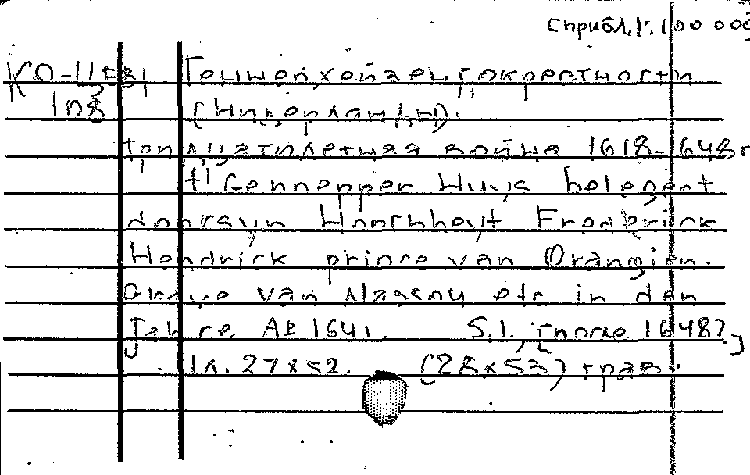 Сприбл. 1: 100 000
КО-11
108
Геннепхейз и окрестности
(Нидерланды).
Тридцатилетная война 1618-1648г
t'Gennepper Huys belegert
door syn Hoocheyt Fredrick
Hendrick prince van Orangien.
Grave van Nassau etc in den
Jahre A° 1641. S.l., [после 1648?]
1л. 27х52. (28х53) грав.